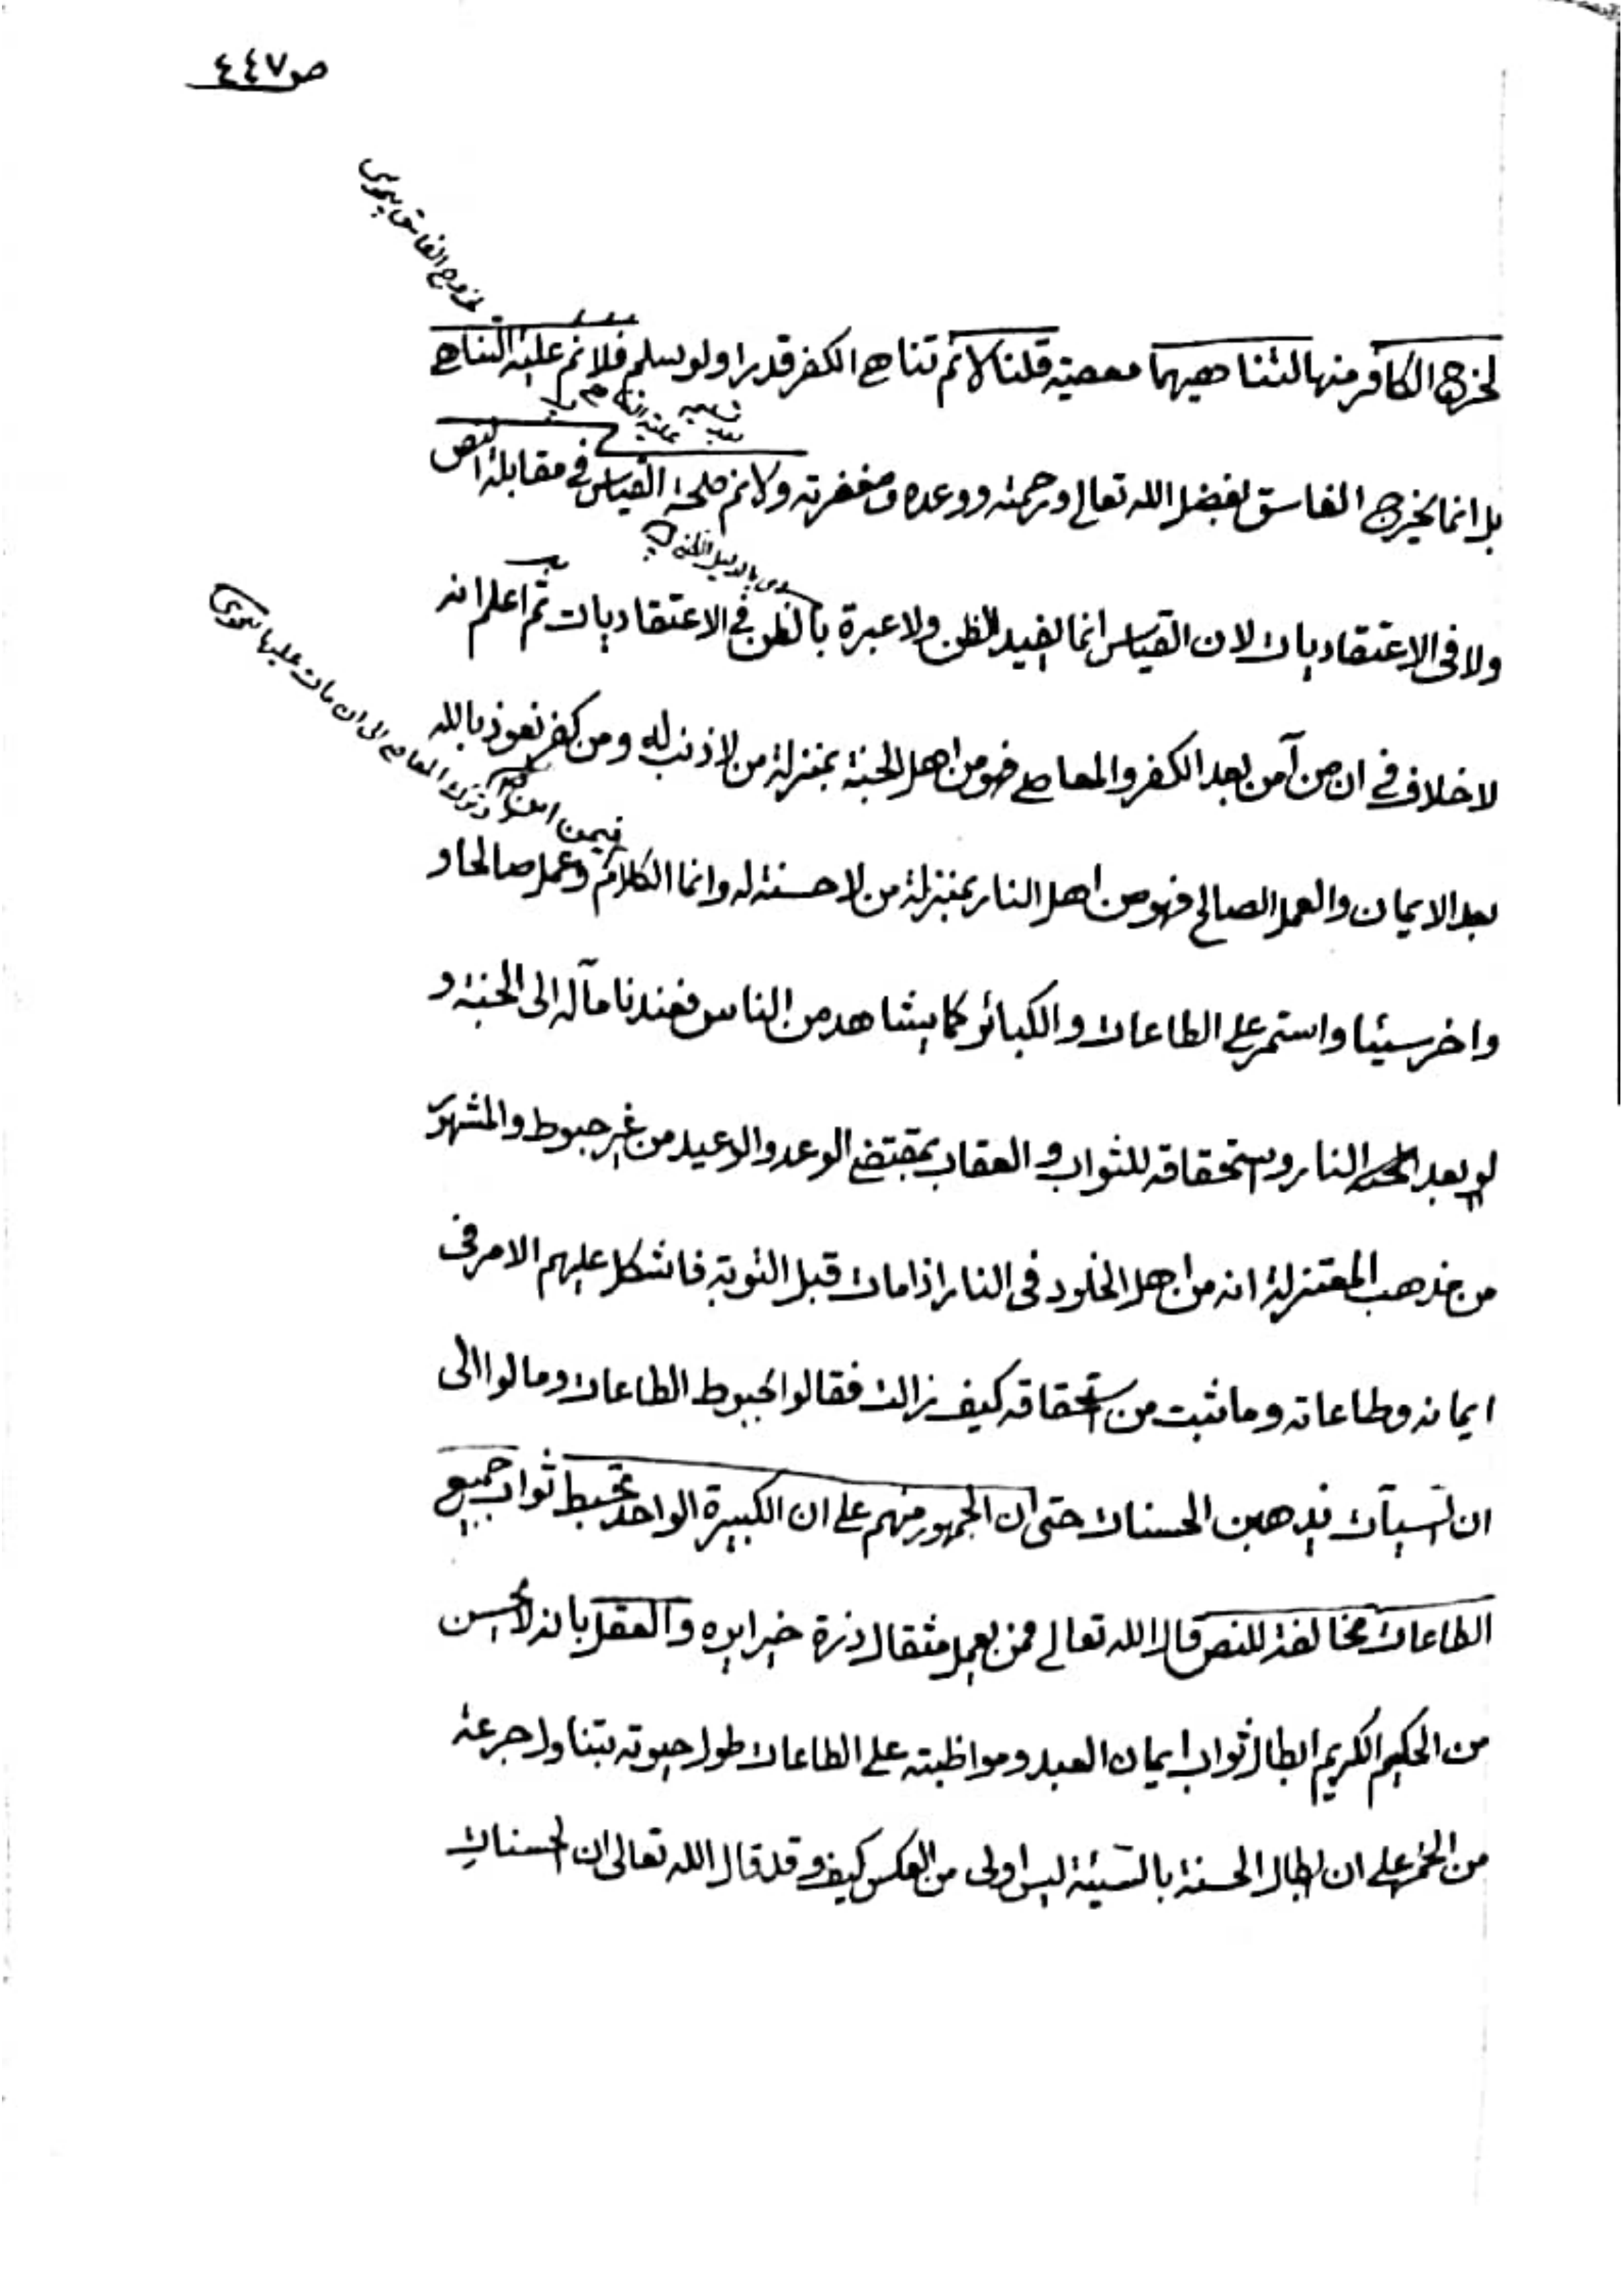 ص ٤٤٧
خروج الفاسق
لخرج الكافر منها لتناهيهما معصية قلنا لانم تناهى الكفر قدرا ولو سلم فلانم علية التناهى
بل انما يخرج الفاسق بفضل الله تعالى ورحمته ووعده ومغفرته ولانم صحة القياس فى مقابلة النص
ولا فى الاعتقاديات لان القياس انما يفيد الظن ولا عبرة بالظن فى الاعتقاديات ثم اعلم انه
لا خلاف فى ان من آمن بعد الكفر والمعاصى فهو من اهل الجنة بمنزلة من لا ذنب له ومن كفر نعوذ بالله
فيمن امن وترك المعاصى الى ان مات عليها
بعد الايمان والعمل الصالح فهو من اهل النار بمنزلة من لا حسنة له وانما الكلام وعمل صالحا و
واخر سيئا واستمر على الطاعات والكبائر كما يشاهد من الناس فعندنا مآله الى الجنة و
لو بعد النار واستحقاقه للثواب و العقاب بمقتضى الوعد والوعيد من غير حبوط والمشهور
من مذهب المعتزلة انه من اهل الخلود فى النار اذا مات قبل التوبة فاشكل عليهم الامر فى
ايمانه وطاعاته وما ثبت من استحقاقه كيف زالت فقالوا لحبوط الطاعات ومالوا الى
ان السيآت يذهبن الحسنات حتى ان الجمهور منهم على ان الكبيرة الواحدة تحبط ثواب جميع
الطاعات مخالفة للنص قال الله تعالى فمن يعمل مثقال ذرة خيرا يره والعقل بانه لا يحسن
من الحكيم الكريم ابطال ثواب ايمان العبد ومواظبته على الطاعات طول حيوته بتناول جرعة
من الخمر على ان ابطال الحسنة بالسيئة ليس اولى من العكس كيف وقد قال الله تعالى ان الحسنات